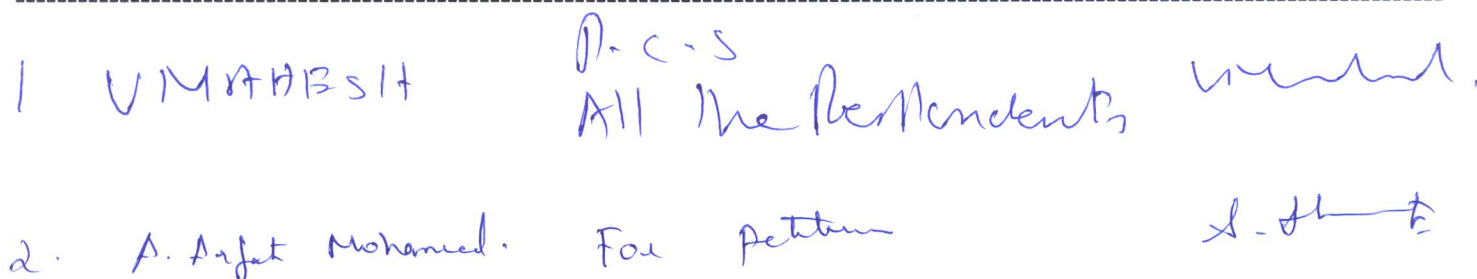 1 V MAHESH P.C.S
All the Respondents
2. A. Arfat Mohamed. For petition